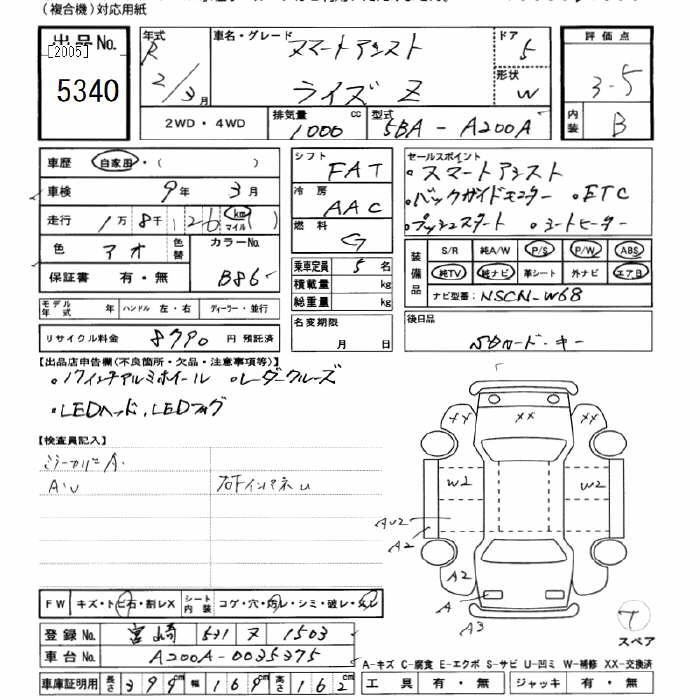 (複合機)対応用紙
出品No.
[2005]
5340
年式
R
2/3月
車名・グレード
スマートアシスト
ライズ Z
ドア
5
形状
W
評価点
3.5
内装
B
2WD・4WD
排気量
1000 cc
型式
5BA-A200A
車歴 自家用・( )
車検 9年 3月
走行 1万 8千 126 km マイル ( )
色 アオ 色替 カラーNo. B86
保証書 有・無
モデル年式 年 ハンドル 左・右 ディーラー・並行
リサイクル料金 8790 円 預託済
シフト FAT
冷房 AAC
燃料 G
乗車定員 5 名
積載量 kg
総重量 kg
名変期限
月 日
セールスポイント
・スマートアシスト
・バックガイドモニター ・ETC
・プッシュスタート ・シートヒーター
装備品
S/R 純A/W P/S P/W ABS
純TV 純ナビ 革シート 外ナビ エアB
ナビ型番: NSCN-W68
後日品
カード・キー
【出品店申告欄(不良箇所・欠品・注意事項等)】
・17インチアルミホイール ・レーダークルーズ
・LEDヘッド、LEDフォグ
【検査員記入】
A・U
XX XX XX
W2 W2
AU2
A2
A2
A
A3
FW キズ・トビ石・割レX シート内装 コゲ・穴・汚レ・シミ・破レ・スレ
登録No. 宮崎 531 ヌ 1503
車台No. A200A-0035375
車庫証明用 長さ 399cm 幅 169cm 高さ 162cm
T
スペア
A-キズ C-腐食 E-エクボ S-サビ U-凹ミ W-補修 XX-交換済
工具 有・無 ジャッキ 有・無